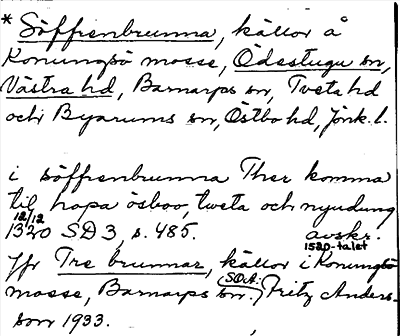 * Söffrenbrunna, källor å
Konungsö mosse, Ödestugu sn,
Västra hd, Barnarps sn, Tveta hd
och Byarums sn, Östbo hd, Jönk. l.
i söffrenbrunna Ther komma
til hopa ösboo, tweta och nyudung
12/12
1320 SD 3, s. 485. avskr.
1520-talet
Jfr Tre brunnar, källor i Konungsö
mosse, Barnarps sn. (SOA.) Fritz Anders-
son 1933.